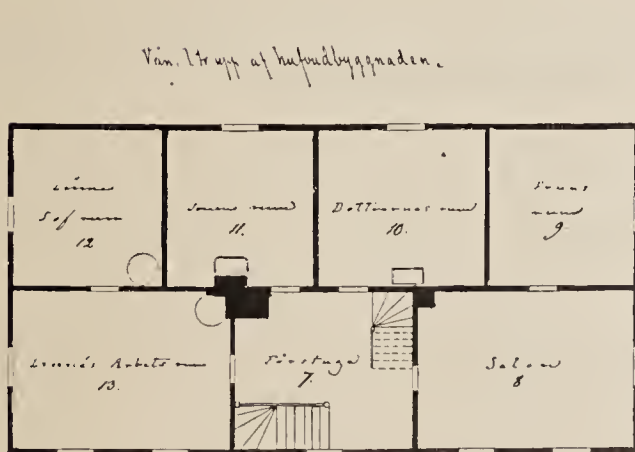 Vån. 1 tr upp af hufvudbyggnaden.
Linnés
Sofrum
12
Sonens rum
11.
Döttrarnas rum
10.
Fruns
rum
9
Linnés Arbetsrum
13.
Förstuga
7.
Salon
8